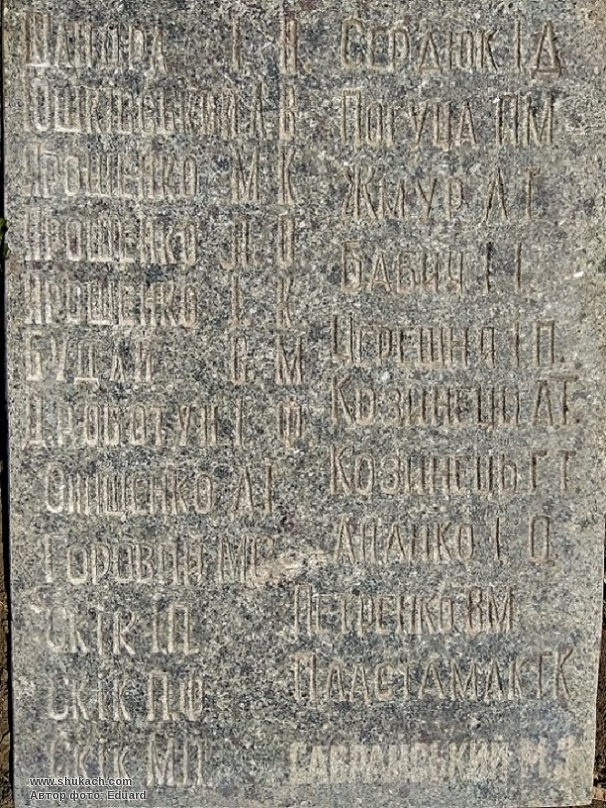 І. Н.
ЯРОЩЕНКО М К
ЯРОЩЕНКО Л О
ЯРОЩЕНКО І. К
БУДАЙ С. М
ДРОБОТУН І. Ф.
ОНІЩЕНКО А Г
ГОРОВИЙ М С
СКІК І.П.
СКІК П.Ф
СКІК М.П.
СЕРДЮК І Д
ПОГУЦА П М
ЖМУР А Г.
БАБИЧ І І.
ЧЕРЕШНЯ І П.
КОЗИНЕЦЬ А Г.
КОЗИНЕЦЬ Г. Т.
АПАНКО І О
ПЕТРЕНКО В М
ПЛАСТАМАК Г К
САВРАНСЬКИЙ М.З
www.shukach.com
Автор фото: Eduard